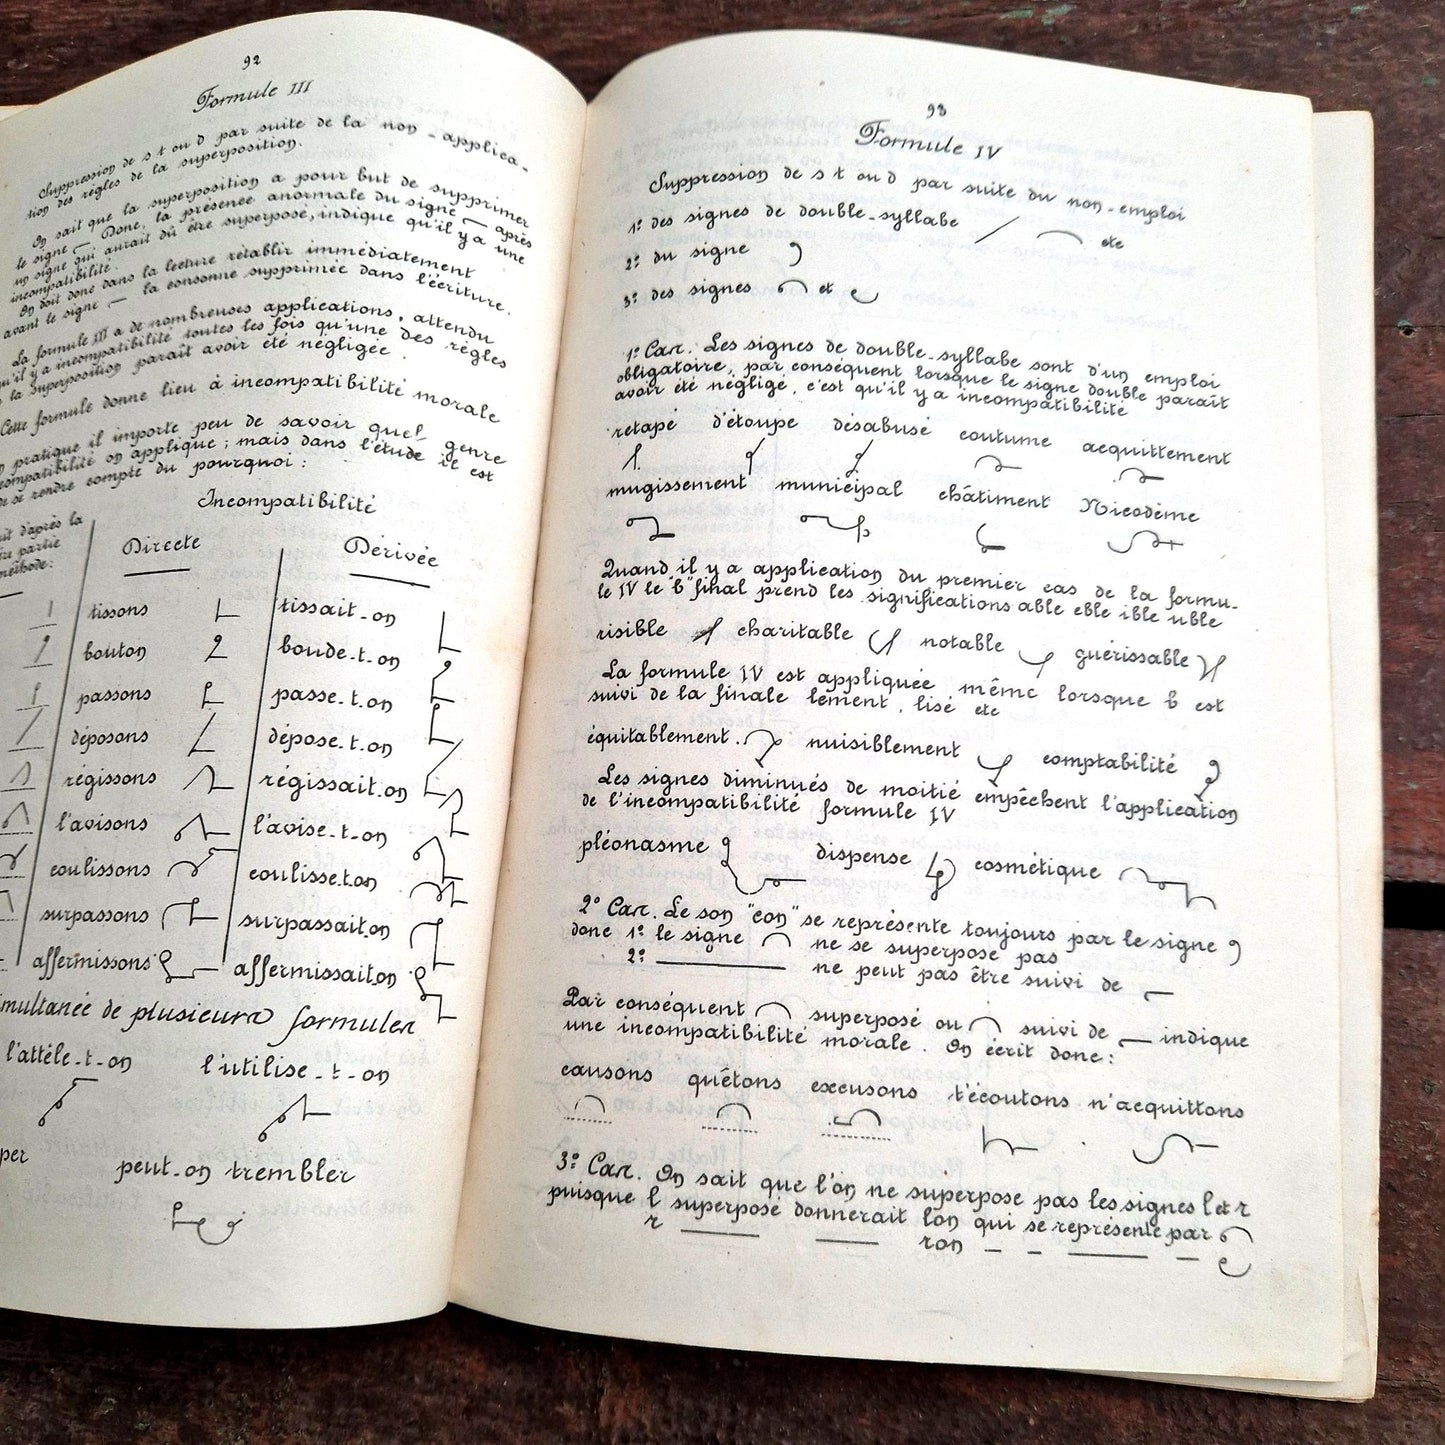 92
Formule III
Suppression de s t ou d par suite de la non-applica-
tion des règles de la superposition.
On sait que la superposition a pour but de supprimer
le signe — Donc, la présence anormale du signe — après
un signe qui aurait dû être superposé, indique qu'il y a une
incompatibilité.
On doit donc dans la lecture rétablir immédiatement
avant le signe — la consonne supprimée dans l'écriture.
La formule III a de nombreuses applications, attendu
qu'il y a incompatibilité toutes les fois qu'une des règles
la superposition paraît avoir été négligée.
Cette formule donne lieu à incompatibilité morale
pratique il importe peu de savoir quel genre
incompatibilité on applique ; mais dans l'étude il est
de se rendre compte du pourquoi :
Incompatibilité
d'après la
partie
méthode:
Directe Dérivée
tissons tissait-on
bouton boude-t-on
passons passe-t-on
déposons dépose-t-on
régissons régissait-on
l'avisons l'avise-t-on
coulissons coulisse-t-on
surpassons surpassait-on
affermissons affermissait-on
simultanée de plusieurs formules
l'attèle-t-on l'utilise-t-on
peut-on trembler
93
Formule IV
Suppression de s t ou d par suite du non-emploi
1º des signes de double-syllabe etc
2º du signe
3º des signes et
1º Cas. Les signes de double-syllabe sont d'un emploi
obligatoire, par conséquent lorsque le signe double paraît
avoir été négligé, c'est qu'il y a incompatibilité
retapé d'étoupe désabusé coutume acquittement
mugissement municipal châtiment Nicodème
Quand il y a application du premier cas de la formu-
le IV le "b" final prend les significations able eble ible uble
risible charitable notable guérissable
La formule IV est appliquée même lorsque b est
suivi de la finale lement, lisé etc
équitablement nuisiblement comptabilité
Les signes diminués de moitié empêchent l'application
de l'incompatibilité formule IV
pléonasme dispense cosmétique
2º Cas. Le son "con" se représente toujours par le signe
donc 1º le signe ne se superpose pas
2º ne peut pas être suivi de
Par conséquent superposé ou suivi de indique
une incompatibilité morale. On écrit donc :
causons quêtons excusons t'écoutons n'acquittons
3º Cas. On sait que l'on ne superpose pas les signes l et r
puisque l superposé donnerait lon qui se représente par
r ron